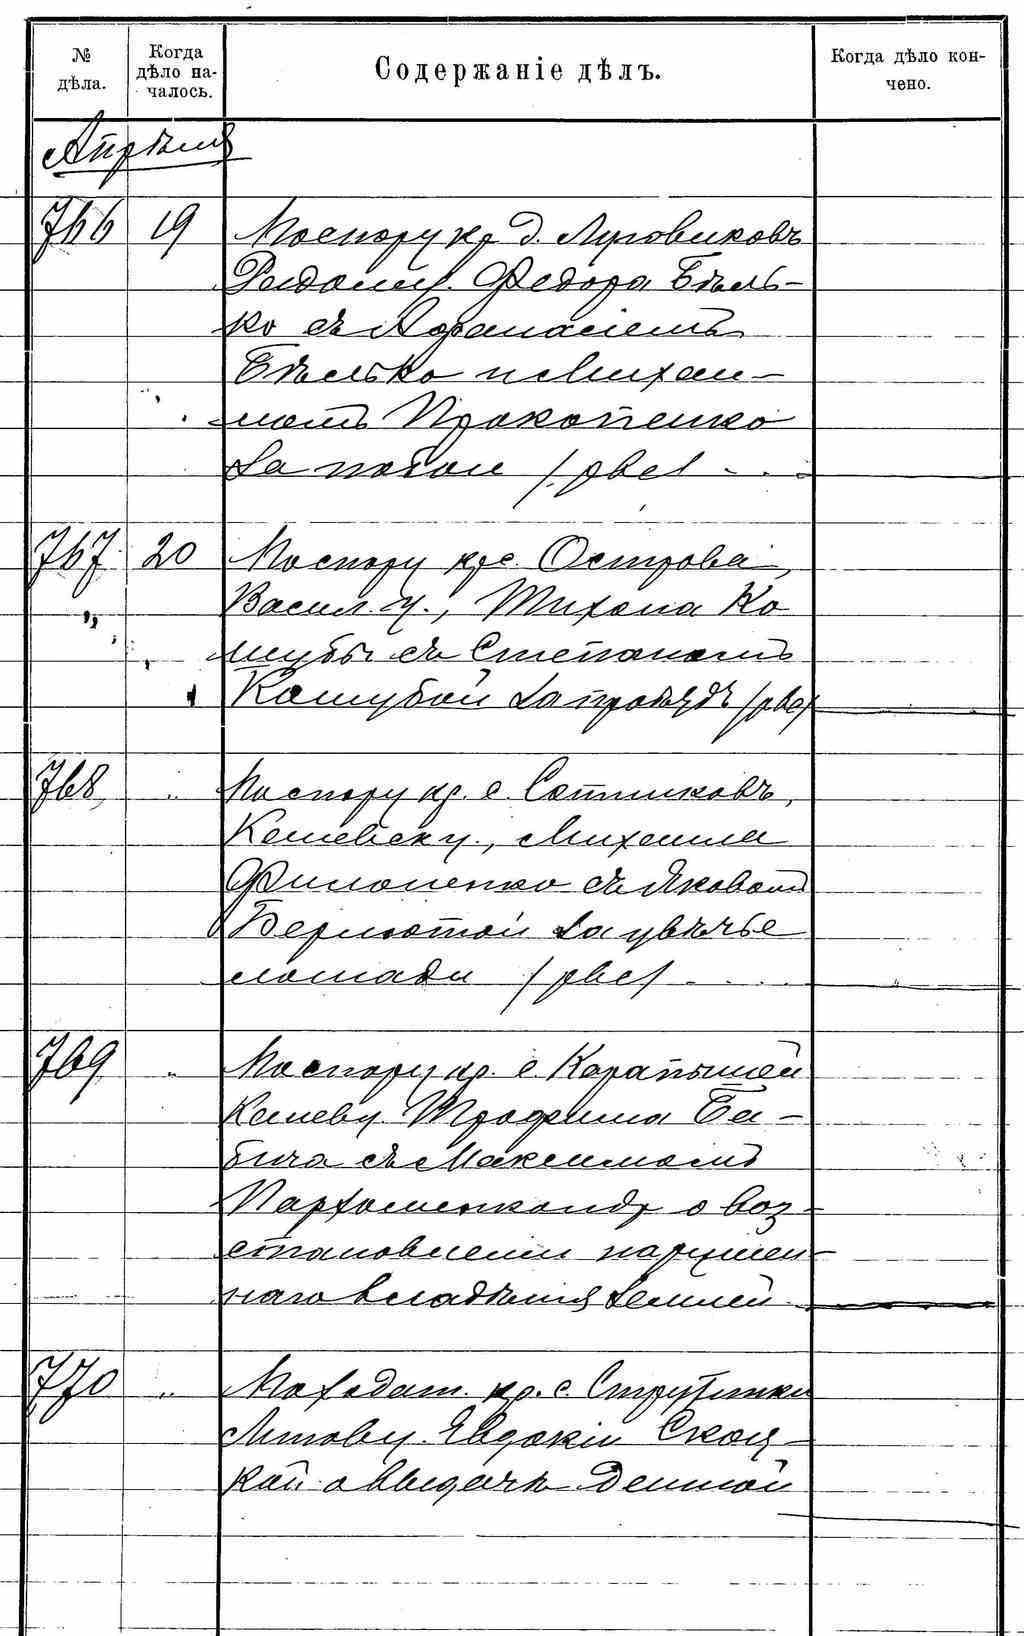 № дѣла.
Когда дѣло началось.
Содержаніе дѣлъ.
Когда дѣло кончено.
Апрѣля
766 19 По спору кр. д. Луговиковъ
Радомыс. Федора Бѣль-
ко съ Афанасіемъ
Бѣлько и Михаи-
ломъ Прокопенко
за побои /рвс/
767 20 По спору кр. с. Острова,
Васил. у., Тихона Ко
шубы съ Степаномъ
Кошубой за проѣздъ /рвс/
768 " По спору кр. с. Сотниковъ,
Каневск у., Михаила
Филоненко съ Яковомъ
Берлютой за увѣчье
лошади /рвс/
769 " По спору кр. с. Карапышей
Канев у. Трофима Ба-
бича съ Максимомъ
Пархоменкомъ о воз-
становленіи нарушен-
наго владѣнія землей
770 " По ходат. кр. с. Струтинки
Липов у. Евдокіи Скоц-
кой о выдачѣ данной